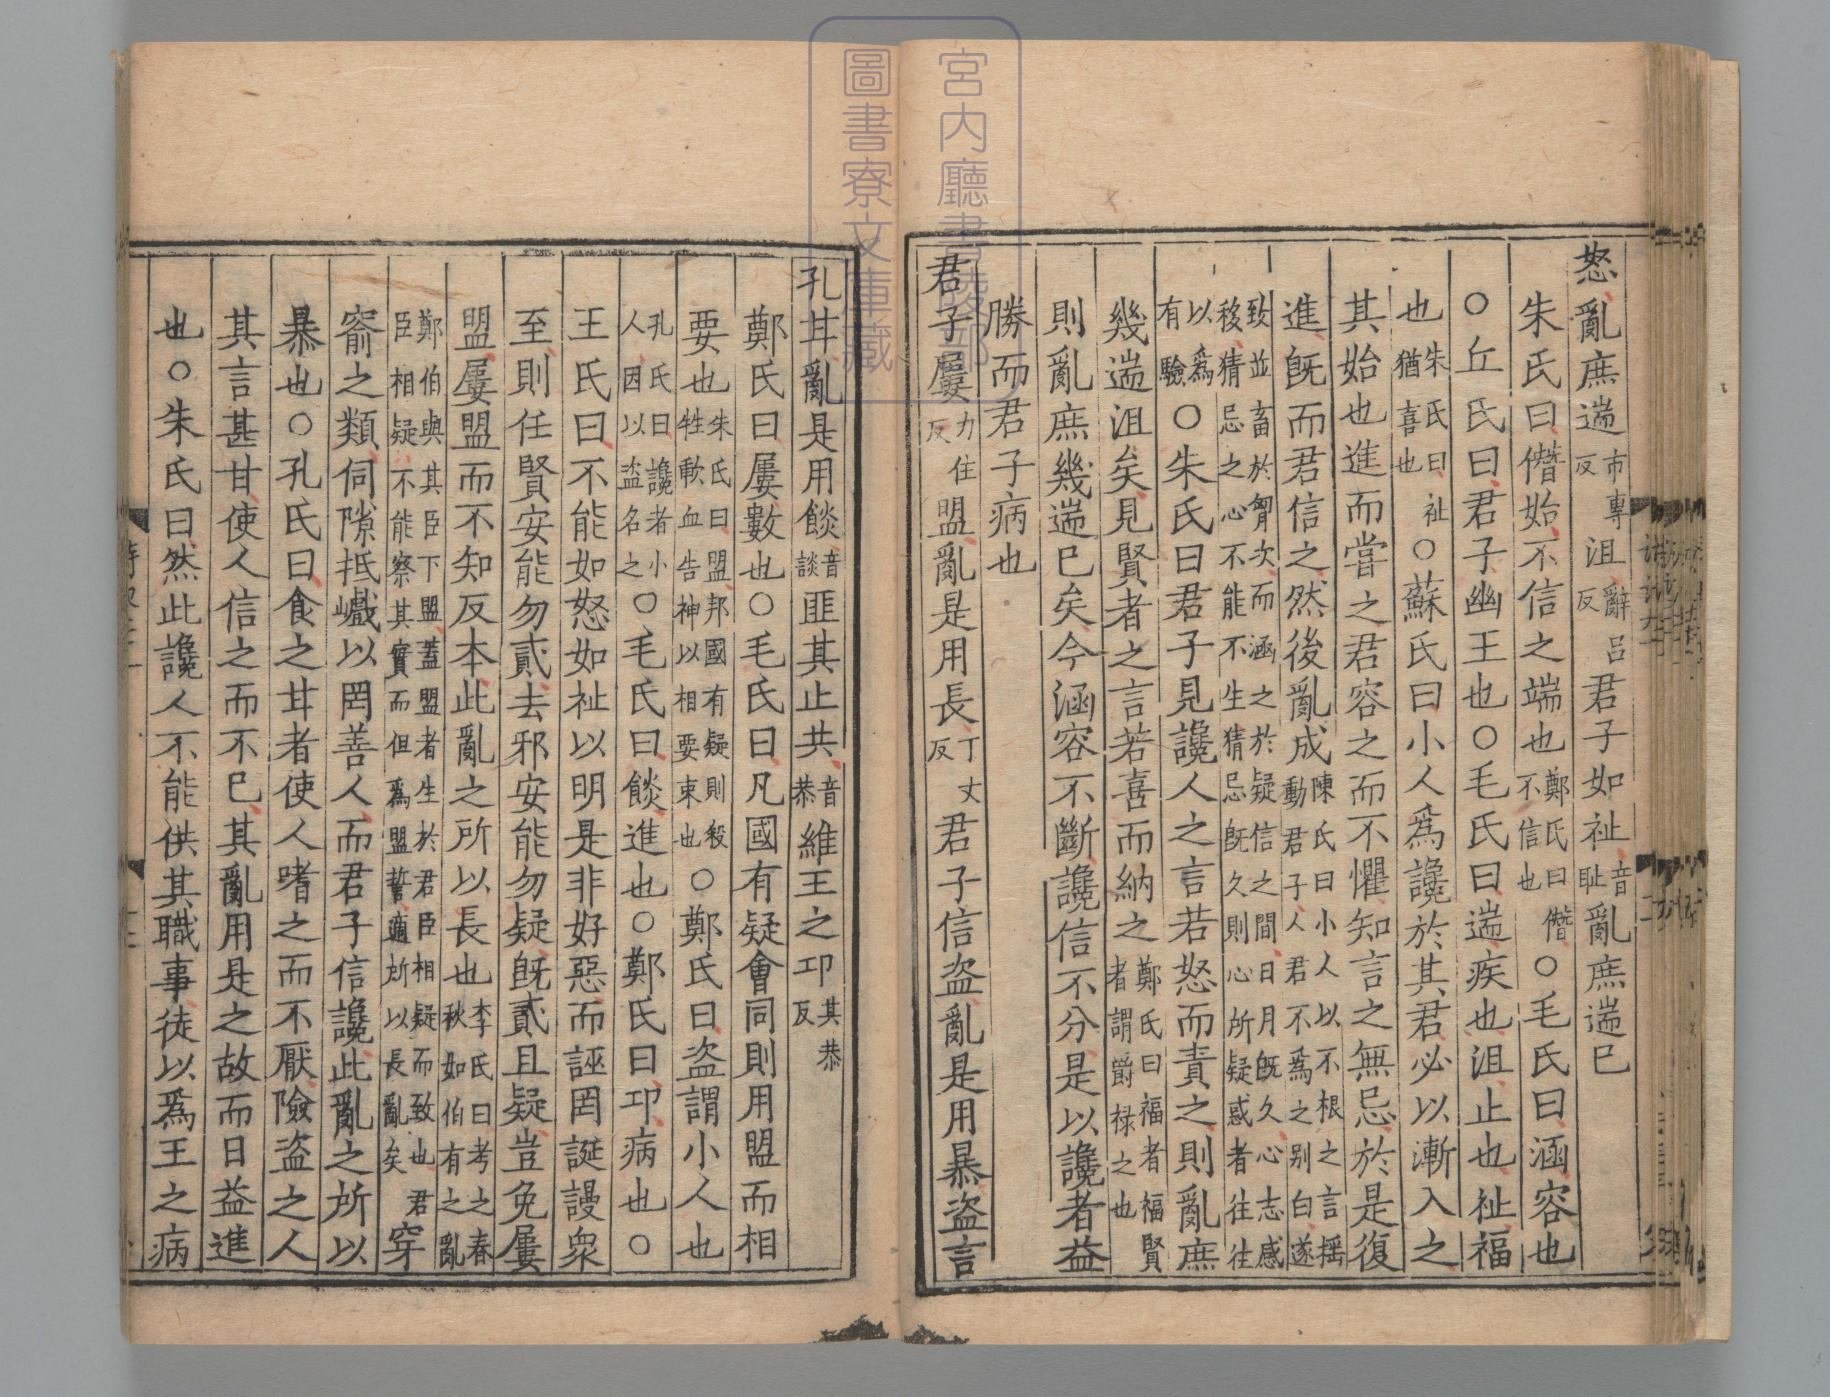 怒亂庶遄市專反沮辭呂反君子如祉音耻亂庶遄巳
朱氏曰僭始不信之端也鄭氏曰僭不信也○毛氏曰涵容也
○丘氏曰君子幽王也○毛氏曰遄疾也沮止也祉福
也朱氏曰祉猶喜也○蘇氏曰小人爲讒於其君必以漸入之
其始也進而嘗之君容之而不懼知言之無忌於是復
進旣而君信之然後亂成陳氏曰小人以不根之言揺動君子人君不爲之别白遂
致並畜於胷次而涵之於疑信之間日月旣久心志感移猜忌之心不能不生猜忌旣久則心所疑惑者往往
以爲有驗○朱氏曰君子見讒人之言若怒而責之則亂庶
幾遄沮矣見賢者之言若喜而納之鄭氏曰福者福賢者謂爵禄之也
則亂庶幾遄巳矣今涵容不斷讒信不分是以讒者益
勝而君子病也
君子屢力住反盟亂是用長丁丈反君子信盗亂是用暴盗言
孔甘亂是用餤音談匪其止共音恭維王之卭其恭反
鄭氏曰屢數也○毛氏曰凡國有疑會同則用盟而相
要也朱氏曰盟邦國有疑則殺牲歃血告神以相要束也○鄭氏曰盗謂小人也
孔氏曰讒者小人因以盗名之○毛氏曰餤進也○鄭氏曰卭病也○
王氏曰不能如怒如祉以明是非好惡而誣罔誕謾衆
至則任賢安能勿貳去邪安能勿疑旣貳且疑豈免屢
盟屢盟而不知反本此亂之所以長也李氏曰考之春秋如伯有之亂
鄭伯與其臣下盟蓋盟者生於君臣相疑而致也君臣相疑不能察其實而但爲盟誓適所以長亂矣穿
窬之類伺隙抵巇以罔善人而君子信讒此亂之所以
暴也○孔氏曰食之甘者使人嗜之而不厭險盗之人
其言甚甘使人信之而不巳其亂用是之故而日益進
也○朱氏曰然此讒人不能供其職事徒以爲王之病
宮内廳書陵部
圖書寮文庫藏